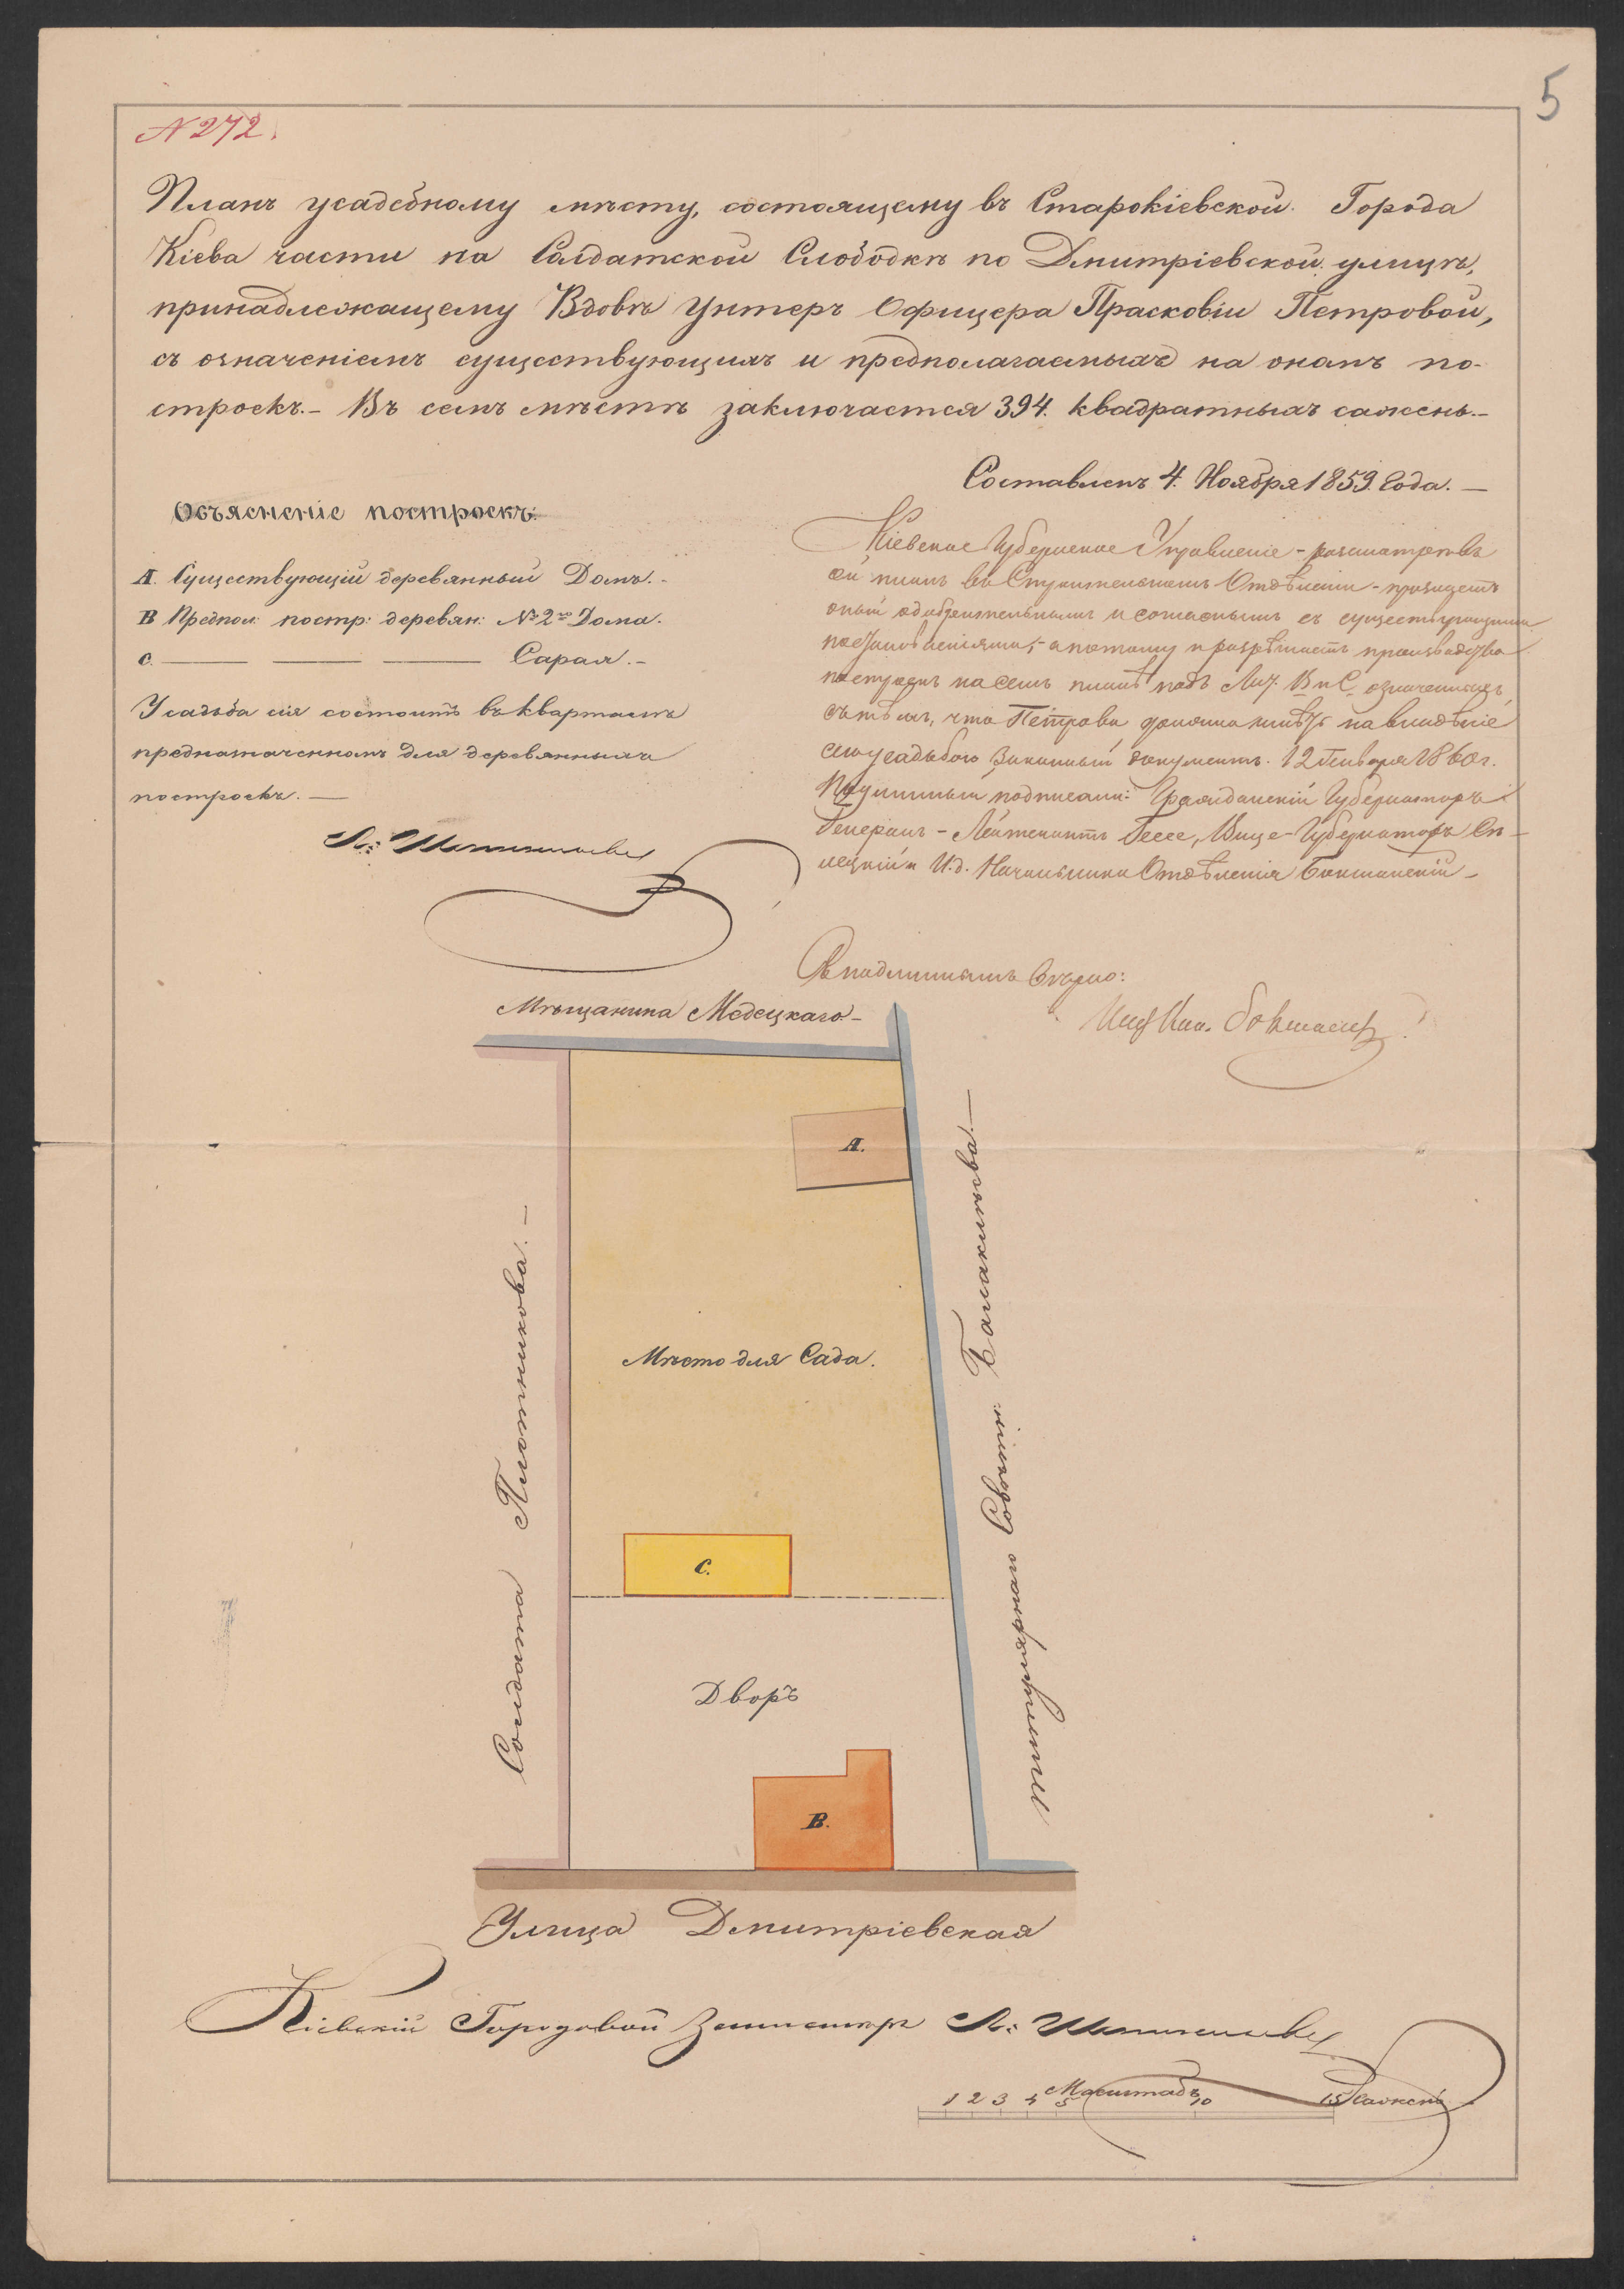 5
№ 272.
Планъ усадебному мѣсту, состоящему въ Старокіевской Города
Кіева части на Салдатской Слободкѣ по Дмитріевской улицѣ,
принадлежащему Вдовѣ Унтеръ Офицера Прасковіи Петровой,
съ означеніемъ существующихъ и предполагаемыхъ на ономъ по-
строекъ.- Въ семъ мѣстѣ заключается 394. квадратныхъ сажень.-
Составленъ 4. Ноября 1859. Года. —
Объясненіе построекъ:
А. Существующій деревянный Домъ. -
В Предпол: постр: деревян: № 2го Дома.
С. — — — Сарая. -
Усадьба сія состоитъ въ кварталѣ
предназначенномъ для деревянныхъ
построекъ. —
Кіевское Губернское Управленіе - разсмотрѣвъ
сей планъ въ Строительномъ Отдѣленіи - признаетъ
оный одобрительнымъ и согласнымъ съ существующими
постановленіями, - а потому и разрѣшаетъ производство
построекъ на семъ планѣ подъ Лит. В и С означенныхъ,
съ тѣмъ, что Петрова должна имѣть на владѣніе
сею усадьбою законный документъ. 12 Генваря 1860 г.
Подлинный подписали: Гражданскій Губернаторъ
Генералъ - Лейтенантъ Гессе, Вице - Губернаторъ Се-
лецкій и И.д. Начальника Отдѣленія Бокшанскій -
Съ подлиннымъ вѣрно:
Мѣщанина Медецкаго -
А.
Солдата Плотникова. —
Титулярнаго Совѣтн: Балакирева. —
Мѣсто для Сада.
С.
Дворъ
В.
Улица Дмитріевская
Кіевскій Городовой Землемѣръ
Масштабъ
1 2 3 4 5 10 15 Сажень